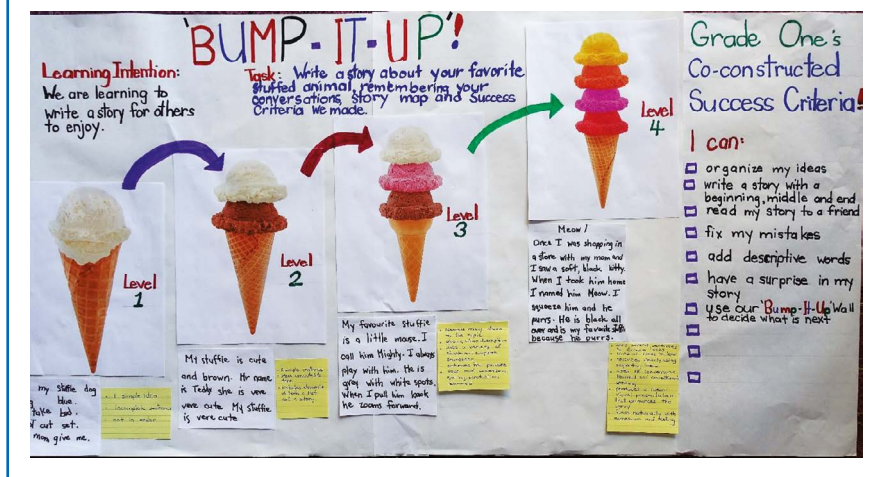 'BUMP-IT-UP'!
Learning Intention:
We are learning to
write a story for others
to enjoy.
Task: Write a story about your favorite
stuffed animal, remembering your
conversations, story map and Success
Criteria we made.
Level
1
Level
2
Level
3
Level
4
my stuffie dog
blue.
take bad.
cut set.
mom give me.
1 simple idea
incomplete
not in order
My stuffie is cute
and brown. Her name
is Tedy she is vere
vere cute My stuffie
is vere cute
My favourite stuffie
is a little mouse. I
call him Mighty. I always
play with him. He is
gray with white spots.
When I pull him back
he zooms forward.
Meow!
Once I was shopping in
a store with my mom and
I saw a soft, black kitty.
When I took him home
I named him Meow. I
squeeze him and he
purrs. He is black all
over and is my favorite
because he purrs.
Grade One's
Co-constructed
Success Criteria!
I can:
organize my ideas
write a story with a
beginning, middle and end
read my story to a friend
fix my mistakes
add descriptive words
have a surprise in my
story
use our 'Bump-It-Up' Wall
to decide what is next